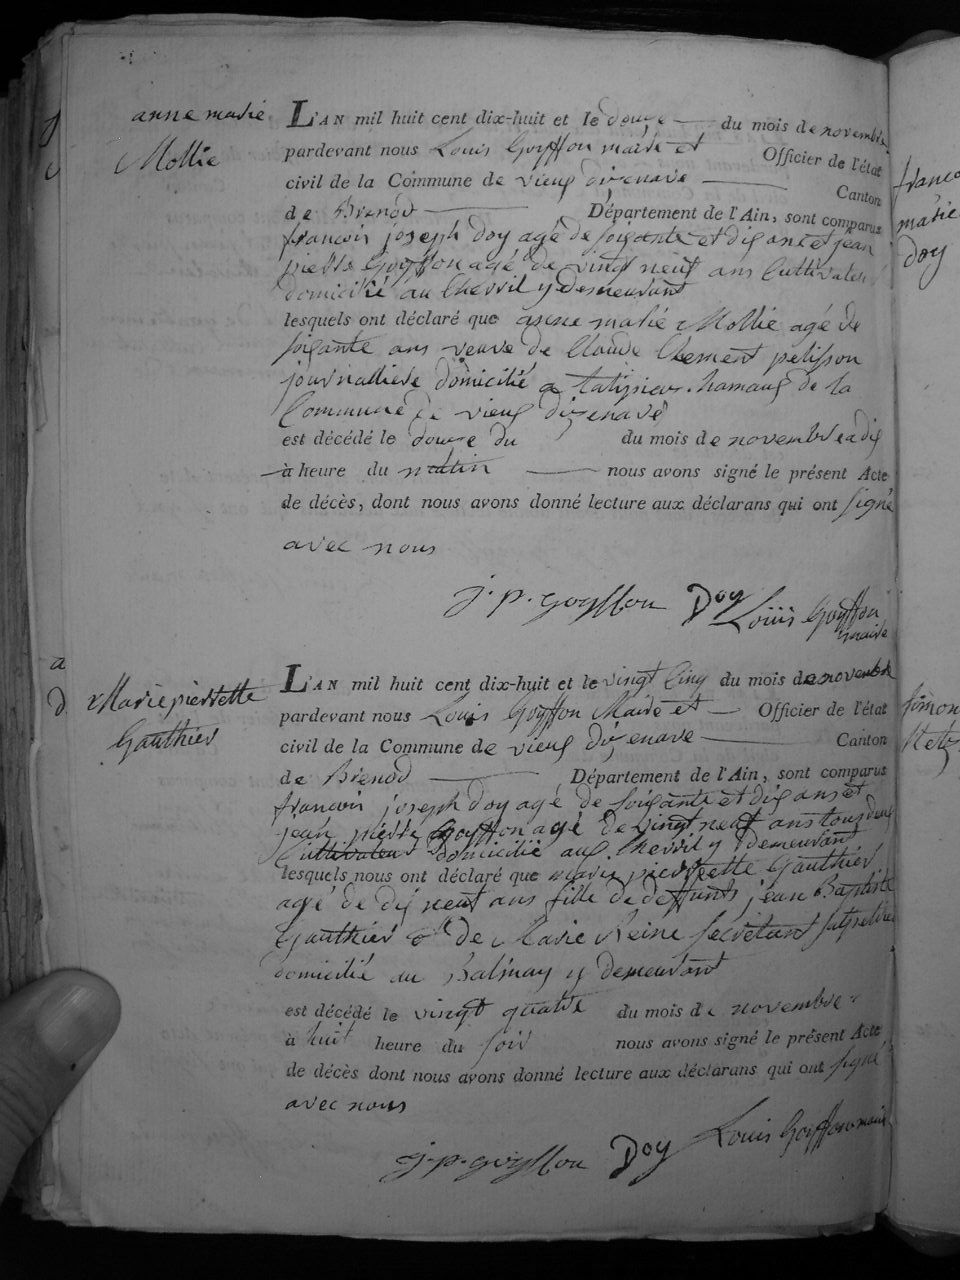 anne marie
Mollie
L'AN mil huit cent dix-huit et le douze du mois de novembre
pardevant nous Louis Goyffon maire et Officier de l'état
civil de la Commune de vieux dizenave Canton
de Brenod Département de l'Ain, sont comparus
francois joseph Doy agé de soixante et dix ans et jean
pierre Goyffon agé de vingt neuf ans Cultivateur
domicilié au Chevril y Demeurant
lesquels ont déclaré que anne marie Mollie agé de
soixante ans veuve de Claude Clement pelisson
journalliere domicilié a hamaux de la
Commune de vieux dizenave
est décédé le douze du du mois de novembre a dix
à heure du matin nous avons signé le présent Acte
de décès, dont nous avons donné lecture aux déclarans qui ont signé
avec nous
j. p. goyffon Doy Louis Goyffon
maire
a
D
Marie pierrette
Gauthier
L'AN mil huit cent dix-huit et le vingt Cinq du mois de novembre
pardevant nous Louis Goyffon Maire et Officier de l'état
civil de la Commune de vieux dizenave Canton
de Brenod Département de l'Ain, sont comparus
francois joseph Doy agé de soixante et dix ans et
jean pierre Goyffon agé de vingt neuf ans tous deux
Cultivateur domicilié aux Chevril y demeurant
lesquels nous ont déclaré que marie pierrette Gauthier
agé de dix neuf ans fille de deffunts jean Baptiste
Gauthier et de Marie Reine Secretant
domicilié au Balmay y demeurant
est décédé le vingt quatre du mois de novembre
à huit heure du soir nous avons signé le présent Acte
de décès dont nous avons donné lecture aux déclarans qui ont signé
avec nous
j. p. goyffon Doy Louis Goyffon maire
marie
Doy
Simon